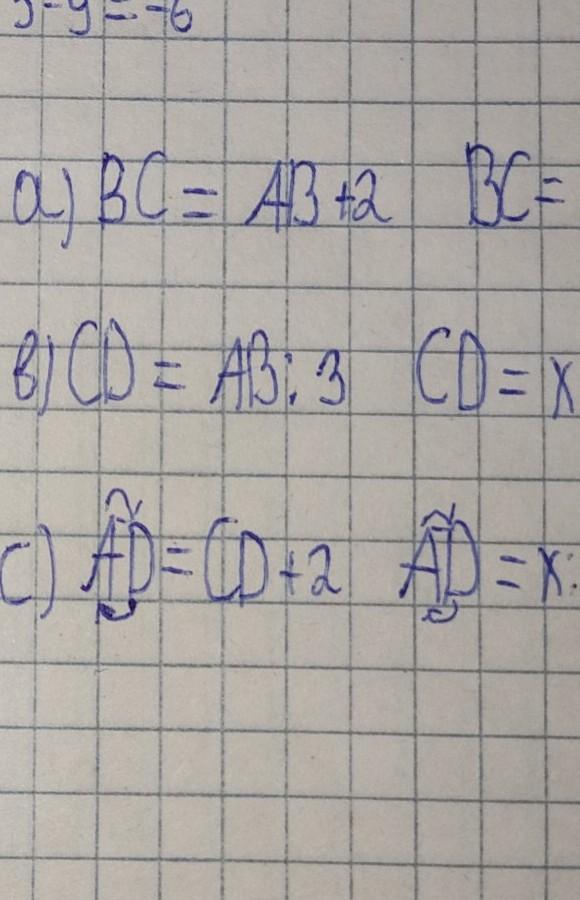 y-y=-6
a) BC = AB+2 BC=
в) CD = AB:3 CD = x
c) AD = CD+2 AD = x: